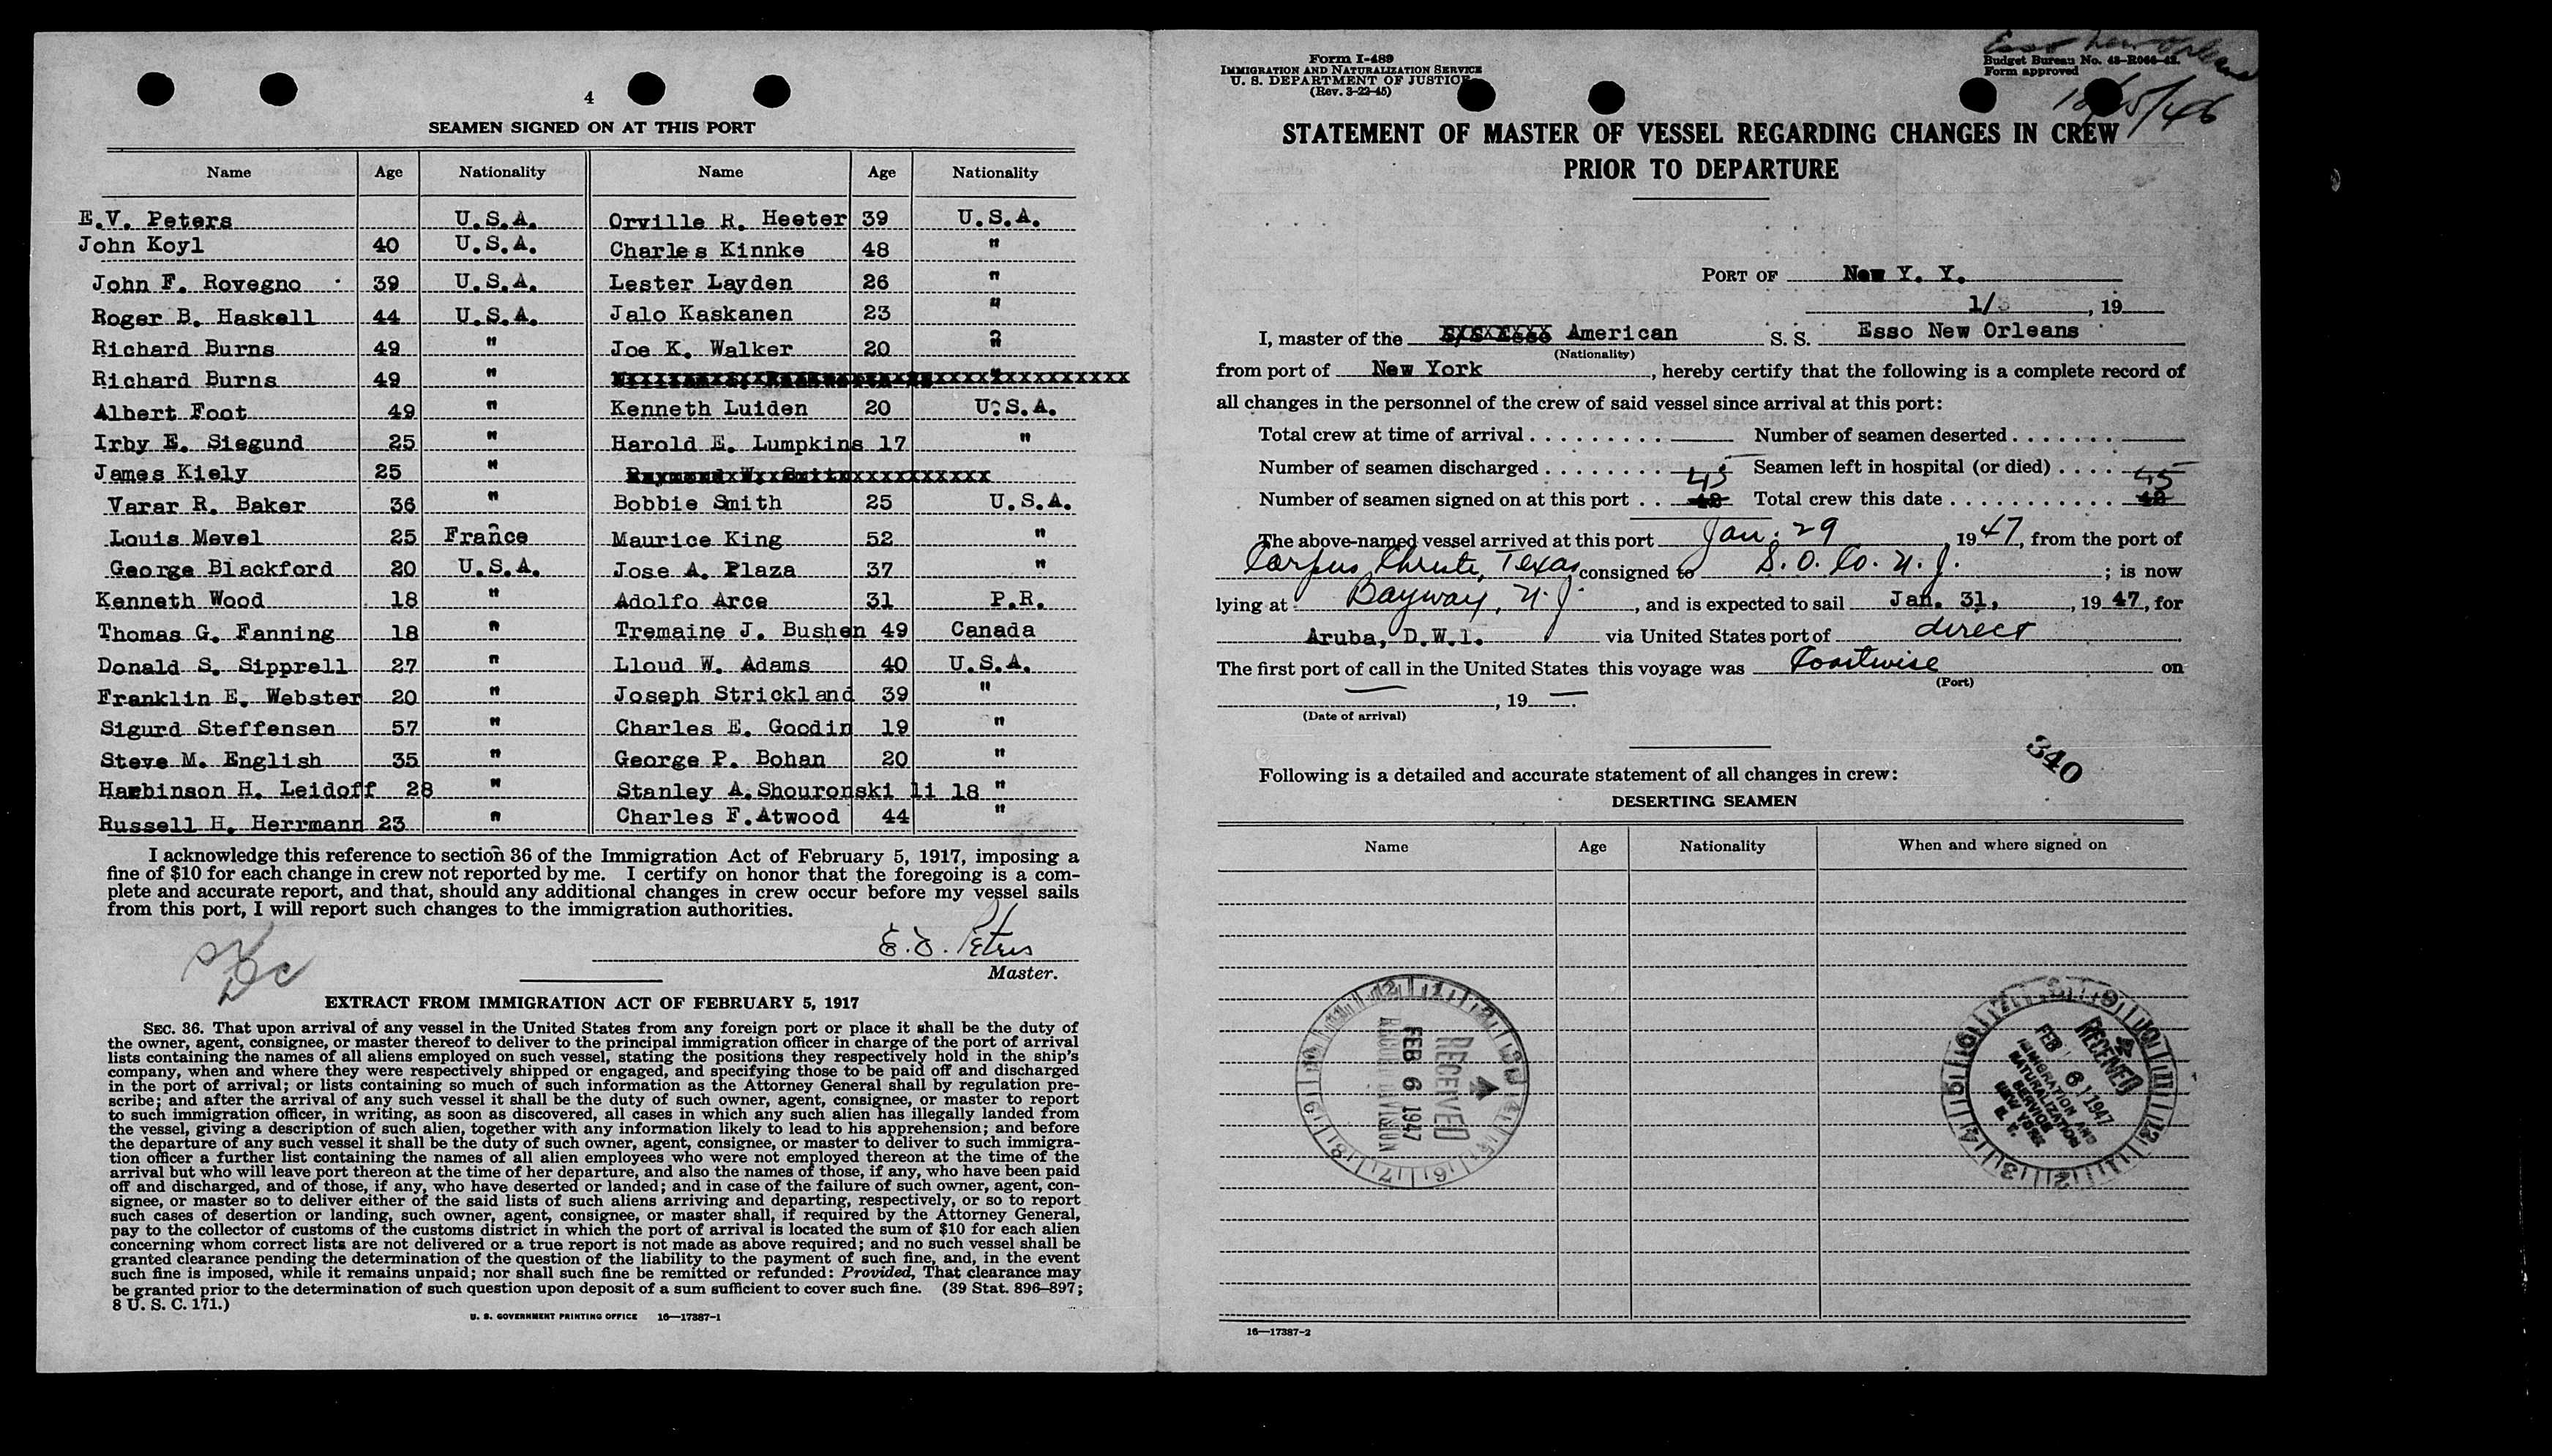 4
SEAMEN SIGNED ON AT THIS PORT
Name Age Nationality Name Age Nationality
E.V. Peters U.S.A. Orville R. Heeter 39 U.S.A.
John Koyl 40 U.S.A. Charles Kinnke 48 "
John F. Rovegno 39 U.S.A. Lester Layden 26 "
Roger B. Haskell 44 U.S.A. Jalo Kaskanen 23 "
Richard Burns 49 " Joe K. Walker 20 "
Richard Burns 49 "
Albert Foot 49 " Kenneth Luiden 20 U.S.A.
Irby E. Siegund 25 " Harold E. Lumpkins 17 "
James Kiely 25 "
Varar R. Baker 36 " Bobbie Smith 25 U.S.A.
Louis Mevel 25 France Maurice King 52 "
George Blackford 20 U.S.A. Jose A. Plaza 37 "
Kenneth Wood 18 " Adolfo Arce 31 P.R.
Thomas G. Fanning 18 " Tremaine J. Bushen 49 Canada
Donald S. Sipprell 27 " Lloud W. Adams 40 U.S.A.
Franklin E. Webster 20 " Joseph Strickland 39 "
Sigurd Steffensen 57 " Charles E. Goodin 19 "
Steve M. English 35 " George P. Bohan 20 "
Harbinson H. Leidoff 28 " Stanley A. Shouronski li 18 "
Russell H. Herrmann 23 " Charles F. Atwood 44 "
I acknowledge this reference to section 36 of the Immigration Act of February 5, 1917, imposing a
fine of $10 for each change in crew not reported by me. I certify on honor that the foregoing is a com-
plete and accurate report, and that, should any additional changes in crew occur before my vessel sails
from this port, I will report such changes to the immigration authorities.
E. V. Peters
Master.
EXTRACT FROM IMMIGRATION ACT OF FEBRUARY 5, 1917
SEC. 36. That upon arrival of any vessel in the United States from any foreign port or place it shall be the duty of
the owner, agent, consignee, or master thereof to deliver to the principal immigration officer in charge of the port of arrival
lists containing the names of all aliens employed on such vessel, stating the positions they respectively hold in the ship's
company, when and where they were respectively shipped or engaged, and specifying those to be paid off and discharged
in the port of arrival; or lists containing so much of such information as the Attorney General shall by regulation pre-
scribe; and after the arrival of any such vessel it shall be the duty of such owner, agent, consignee, or master to report
to such immigration officer, in writing, as soon as discovered, all cases in which any such alien has illegally landed from
the vessel, giving a description of such alien, together with any information likely to lead to his apprehension; and before
the departure of any such vessel it shall be the duty of such owner, agent, consignee, or master to deliver to such immigra-
tion officer a further list containing the names of all alien employees who were not employed thereon at the time of the
arrival but who will leave port thereon at the time of her departure, and also the names of those, if any, who have been paid
off and discharged, and of those, if any, who have deserted or landed; and in case of the failure of such owner, agent, con-
signee, or master so to deliver either of the said lists of such aliens arriving and departing, respectively, or so to report
such cases of desertion or landing, such owner, agent, consignee, or master shall, if required by the Attorney General,
pay to the collector of customs of the customs district in which the port of arrival is located the sum of $10 for each alien
concerning whom correct lists are not delivered or a true report is not made as above required; and no such vessel shall be
granted clearance pending the determination of the question of the liability to the payment of such fine, and, in the event
such fine is imposed, while it remains unpaid; nor shall such fine be remitted or refunded: Provided, That clearance may
be granted prior to the determination of such question upon deposit of a sum sufficient to cover such fine. (39 Stat. 896–897;
8 U. S. C. 171.)
U. S. GOVERNMENT PRINTING OFFICE 16—17387-1
Form I-489
IMMIGRATION AND NATURALIZATION SERVICE
U. S. DEPARTMENT OF JUSTICE
(Rev. 3-22-45)
Esso New Orleans
Budget Bureau No. 43-R064-42.
Form approved
STATEMENT OF MASTER OF VESSEL REGARDING CHANGES IN CREW
PRIOR TO DEPARTURE
PORT OF New Y. Y.
1/3, 19
I, master of the American S. S. Esso New Orleans
(Nationality)
from port of New York, hereby certify that the following is a complete record of
all changes in the personnel of the crew of said vessel since arrival at this port:
Total crew at time of arrival Number of seamen deserted
Number of seamen discharged Seamen left in hospital (or died)
45 45
Number of seamen signed on at this port 42 Total crew this date 42
The above-named vessel arrived at this port Jan. 29, 1947, from the port of
Corpus Christi, Texas consigned to S. O. Co. N. J.; is now
lying at Bayway, N. J., and is expected to sail Jan. 31, 1947, for
Aruba, D.W.I. via United States port of direct
The first port of call in the United States this voyage was Coastwise on
(Port)
, 19
(Date of arrival)
340
Following is a detailed and accurate statement of all changes in crew:
DESERTING SEAMEN
Name Age Nationality When and where signed on
RECEIVED
FEB 6 1947
RECORD DIVISION
RECEIVED
FEB 6 1947
IMMIGRATION AND
NATURALIZATION
SERVICE
NEW YORK
N. Y.
16—17387-2